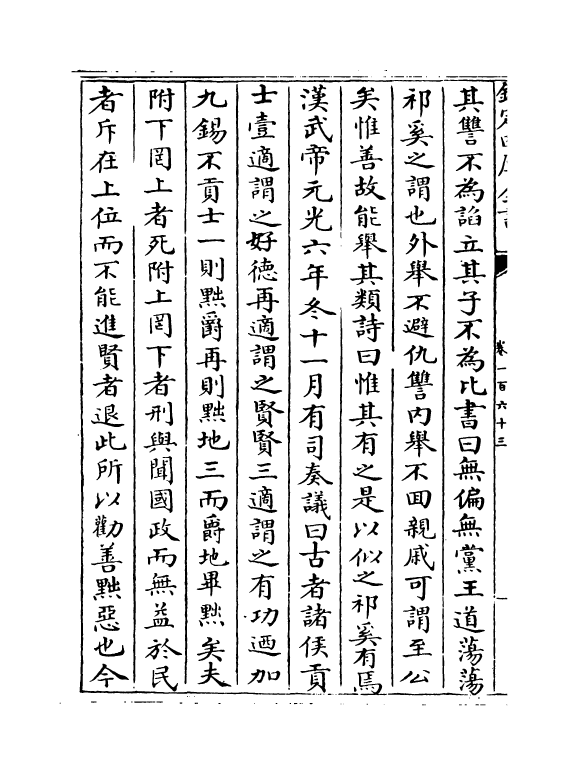 欽定四庫全書
卷一百六十三
其讐不為諂立其子不為比書曰無偏無黨王道蕩蕩
祁奚之謂也外舉不避仇讐内舉不回親戚可謂至公
矣惟善故能舉其類詩曰惟其有之是以似之祁奚有焉
漢武帝元光六年冬十一月有司奏議曰古者諸侯貢
士壹適謂之好德再適謂之賢賢三適謂之有功迺加
九錫不貢士一則黜爵再則黜地三而爵地畢黜矣夫
附下罔上者死附上罔下者刑與聞國政而無益於民
者斥在上位而不能進賢者退此所以勸善黜惡也今